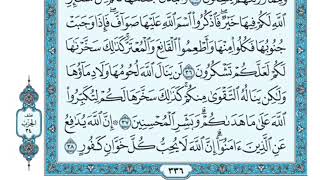 ٱللَّهِ لَكُمْ فِيهَا خَيْرٌ ۖ فَٱذْكُرُوا۟ ٱسْمَ ٱللَّهِ عَلَيْهَا صَوَآفَّ ۖ فَإِذَا وَجَبَتْ
جُنُوبُهَا فَكُلُوا۟ مِنْهَا وَأَطْعِمُوا۟ ٱلْقَانِعَ وَٱلْمُعْتَرَّ ۚ كَذَٰلِكَ سَخَّرْنَٰهَا
لَكُمْ لَعَلَّكُمْ تَشْكُرُونَ ٣٦ لَن يَنَالَ ٱللَّهَ لُحُومُهَا وَلَا دِمَآؤُهَا
وَلَٰكِن يَنَالُهُ ٱلتَّقْوَىٰ مِنكُمْ ۚ كَذَٰلِكَ سَخَّرَهَا لَكُمْ لِتُكَبِّرُوا۟
ٱللَّهَ عَلَىٰ مَا هَدَىٰكُمْ ۗ وَبَشِّرِ ٱلْمُحْسِنِينَ ٣٧ إِنَّ ٱللَّهَ يُدَٰفِعُ
عَنِ ٱلَّذِينَ ءَامَنُوٓا۟ ۗ إِنَّ ٱللَّهَ لَا يُحِبُّ كُلَّ خَوَّانٍ كَفُورٍ ٣٨
الحزب
٣٣٦